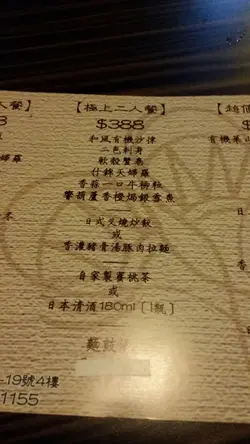 人餐】
【極上二人餐】
【超值
8
$388
$
和風有機沙律
有機菓
二色刺身
軟殼蟹卷
婦羅
什錦天婦羅
香蒜一口牛柳粒
響葫蘆香橙焗銀鱈魚
日式叉燒炒飯
或
香濃豬骨湯豚肉拉麵
自家製蜜桃茶
或
日本清酒180ml〔1瓶〕
-19號4樓
1155